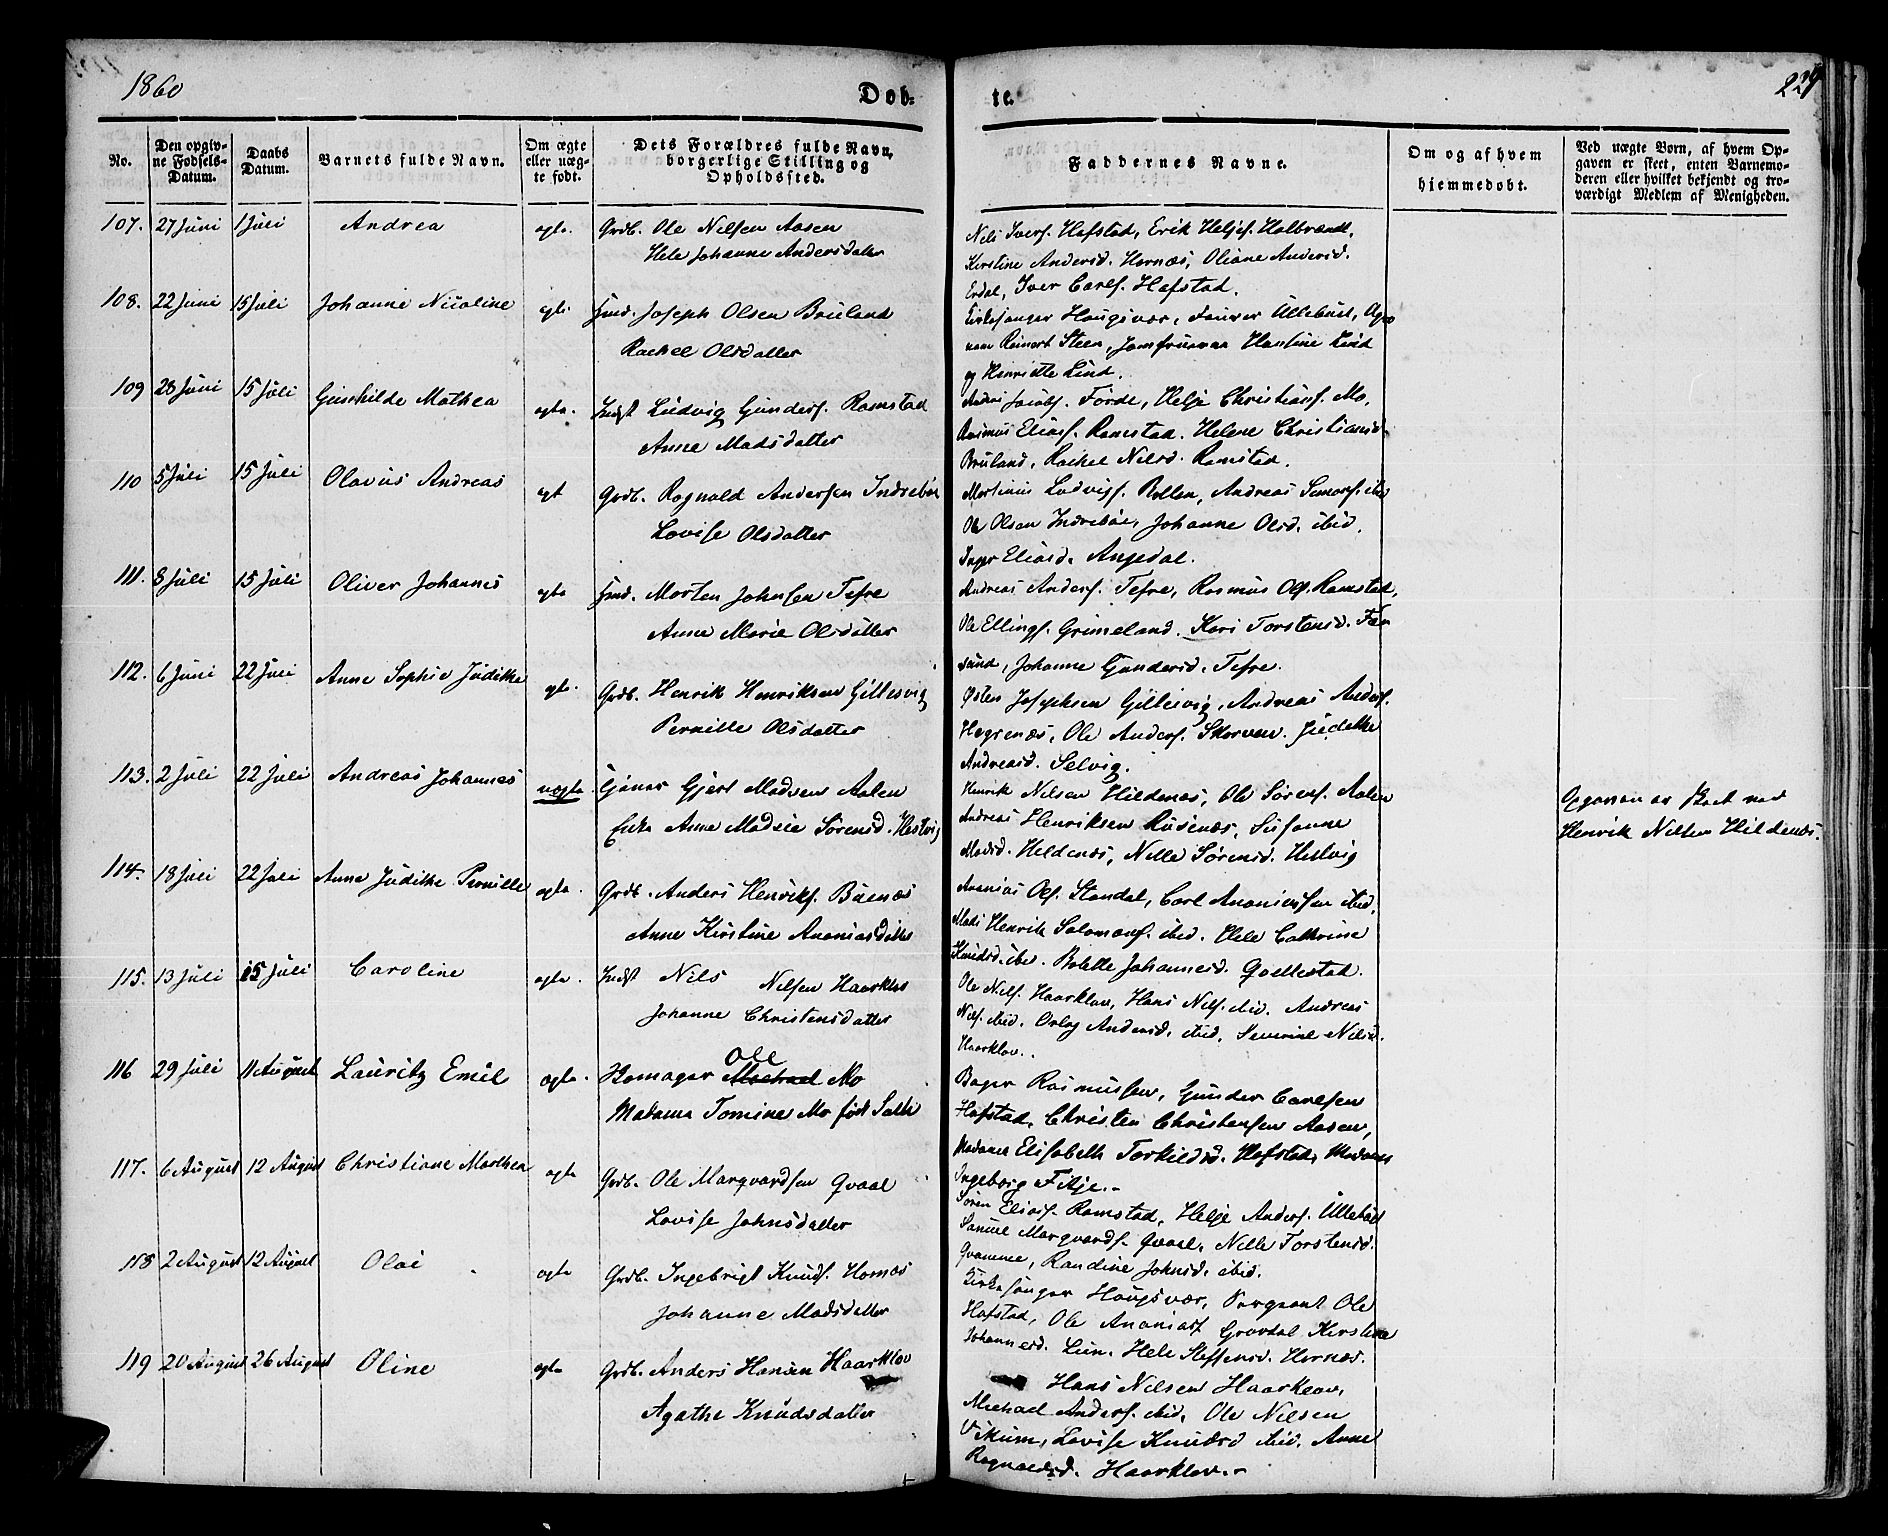 1860
Døb-
te.
229
No.
Den opgiv-
ne Fødsels-
Datum.
Daabs
Datum.
Barnets fulde Navn.
Om ægte
eller uæg-
te født.
Dets Forældres fulde Navn,
borgerlige Stilling og
Opholdssted.
Faddernes Navne.
Om og af hvem
hjemmedøbt.
Ved uægte Børn, af hvem Op-
gaven er skeet, enten Barnemo-
deren eller hvilket bekjendt og tro-
værdigt Medlem af Menigheden.
107. 27 Juni 1 Juli Andrea ægte. Grdb. Ole Nilsen Aasen
Hele Johanne Andersdatter
Nils Ivers. Hafstad, Erik Heljes. Halbrændt,
Kirstine Andersd. Hornæs, Oliane Andersd.
Erdal, Iver Carls. Hafstad.
108. 22 Juni 15 Juli Johanne Nicoline ægte Hmd. Joseph Olsen Bruland
Rachel Olsdatter
Kirkesanger Hougsvær, Ullebust,
Reinert Steen, Jomfruerne Hansine Lind
og Henriette Lind.
109 28 Juni 15 Juli Gunhilde Mathea ægte. Indst Ludvig Gunders. Ramstad
Anne Madsdatter
Jacobs. Førde, Helje Christians. Mo,
Rasmus Elias. Ramstad. Helene Christiansd.
Bruland, Rachel Nilsd. Ramstad.
110 5 Juli 15 Juli Olavus Andreas ægt Grdb. Ragnald Andersen Indrebøe
Lovise Olsdatter
Martinus Ludvigs. Andreas Simons. ibid
Ole Olsen Indrebøe, Johanne Olsd. ibid.
Inger Eliasd. Angedal.
111. 8 Juli 15 Juli Oliver Johannes ægte Hmd. Morten Johnsen Tefre
Anne Marie Olsdatter
Andreas Anders. Tefre, Rasmus Ols. Ramstad,
Ole Ellings. Grimeland. Kari Torstensd. Far
sund, Johanne Gundersd. Tefre.
112. 6 Juni 22 Juli Anne Sophie Judithe ægte. Grdb. Henrik Henriksen Gillesvig
Pernille Olsdatter
Østen Josephsen Gillesvig, Andreas Anders.
Hegrenæs, Ole Anders. Skorven. Judithe
Andreasd. Selvig.
113. 2 Juli 22 Juli Andreas Johannes uægte. Gjert Madsen Aalen
Enke Anne Madsie Sørensd. Hestvig
Henrik Nilsen Hildenæs, Ole Sørens. Aalen
Andreas Henriksen Rusenæs, Susanne
Madsd. Hildenæs, Nille Sørensd. Hestvig
Opgaven er skeet ved
Henrik Nilsen Hildenæs.
114. 18 Juli 22 Juli Anne Judithe Pernille ægte. Grdb. Anders Henriks. Buenæs
Anne Kirstine Ananiasdatter
Ananias Ols. Standal, Carl Ananiassen ibid,
Mads Henrik Salomons. ibid. Hele Cathrine
Knudsd. ibid. Bolette Johannesd. Gjellestad.
115. 13 Juli 15 Juli Caroline ægte. Indst Nils Nilsen Haarklov
Johanne Christensdatter
Ole Nils. Haarklov, Hans Nils. ibid. Andreas
Nils. ibid. Orlog Andersd. ibid. Severine Nilsd.
Haarklov.
116 29 Juli 11 August Lauritz Emil ægte. Skomager Michael Ole Mo
Madame Tomine Mo født
Bager Rasmussen, Gunder Carlsen
Hafstad, Christen Christensen Aasen,
Madame Elisabeth Torkildsd. Hafstad, Madame
Ingeborg Fitje.
117. 6 August 12 August Christiane Marthea ægte Grdb. Ole Marqvardsen Qvaal
Lovise Johnsdatter
Søren Elias. Ramstad, Helje Anders. Ullebust
Samuel Marqvards. Qvaal, Nille Torstensd.
Qvamme, Randine Johnsd. ibid.
118 2 August 12 August Oloi ægte Grdb. Ingebrigt Knuds. Hornæs
Johanne Madsdatter
Kirkesanger Hougsvær, Sergeant Ole
Hafstad, Ole Ananias. Grovdal Kirstine
Johannesd. Lien. Hele Steffensd. Hornæs.
119 20 August 26 August Oline ægte Grdb. Anders Hansen Haarklov
Agathe Knudsdatter
Hans Nilsen Haarklov,
Michael Anders. ibid. Ole Nilsen
Vikum, Lovise Knudsd ibid. Anne
Ragnaldsd. Haarklov.